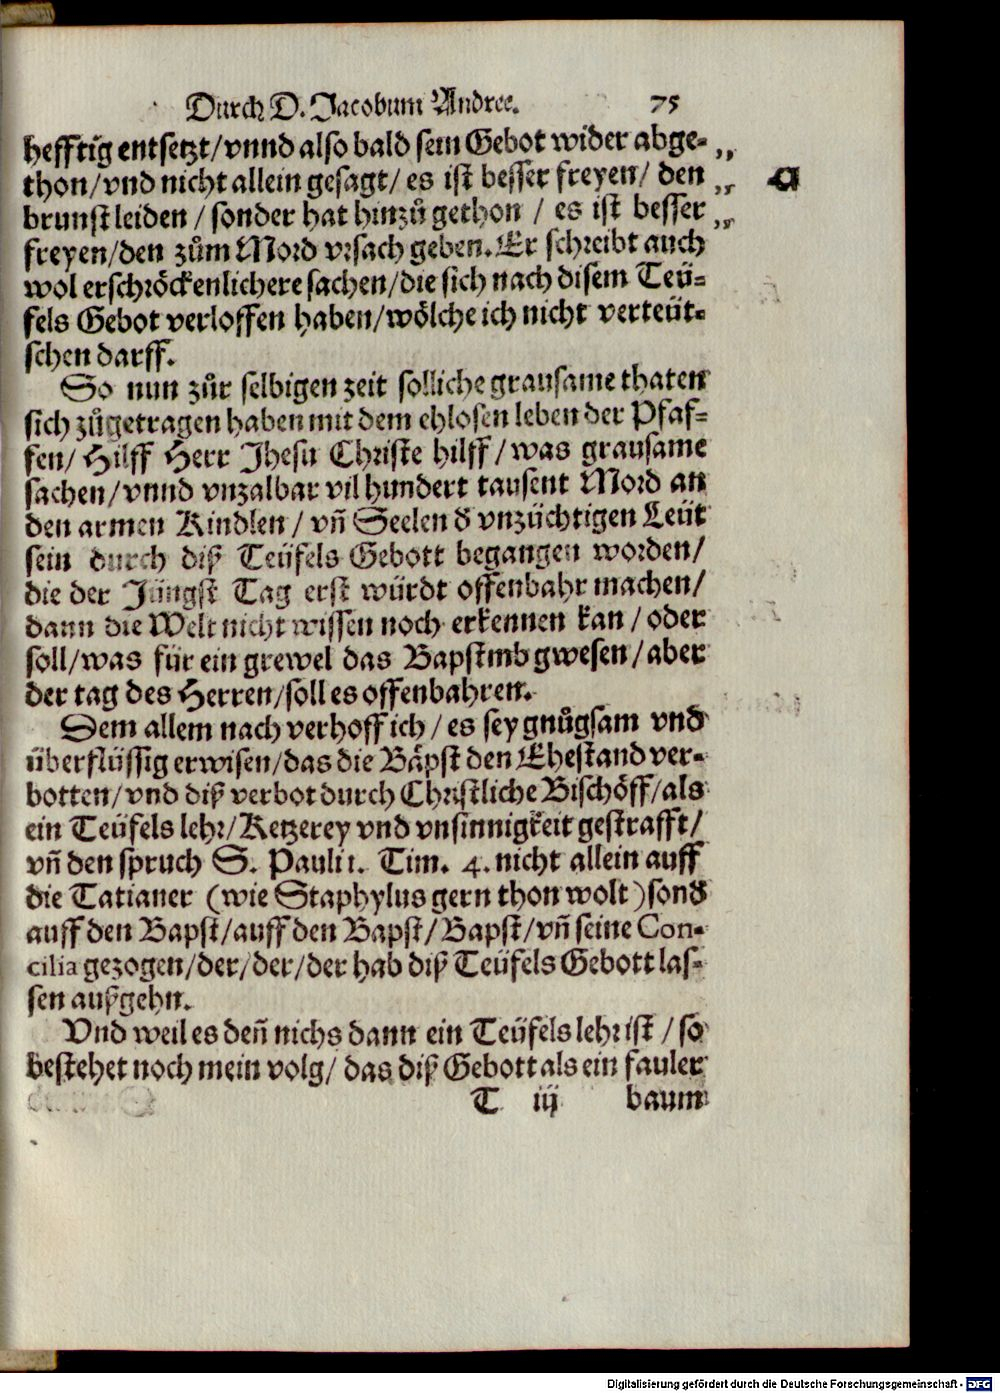 Durch D. Jacobum Andree. 75
hefftig entsetzt/vnnd also bald sein Gebot wider abge- „
thon/vnd nicht allein gesagt/ es ist besser freyen/ den „
brunst leiden / sonder hat hinzů gethon / es ist besser „
freyen/den zům Mord vrsach geben. Er schreibt auch
wol erschröckenlichere sachen/die sich nach disem Teü-
fels Gebot verloffen haben/wölche ich nicht verteüt-
schen darff.
So nun zůr selbigen zeit solliche grausame thaten
sich zůgetragen haben mit dem ehlosen leben der Pfaf-
fen/ Hilff Herr Jhesu Christe hilff/ was grausame
sachen/vnnd vnzalbar vil hundert tausent Mord an
den armen Kindlen / vñ Seelen d̕ vnzüchtigen Leüt
sein durch diß Teüfels Gebott begangen worden/
die der Jüngst Tag erst würdt offenbahr machen/
dann die Welt nicht wissen noch erkennen kan / oder
soll/was für ein grewel das Bapstmb gwesen/aber
der tag des Herren/soll es offenbahren.
Dem allem nach verhoff ich/ es sey gnůgsam vnd
überflüssig erwisen/das die Bäpst den Ehestand ver-
botten/vnd diß verbot durch Christliche Bischöff/als
ein Teüfels lehr/Ketzerey vnd vnsinnigkeit gestrafft/
vñ den spruch S. Pauli 1. Tim. 4. nicht allein auff
die Tatianer (wie Staphylus gern thon wolt) sond̕
auff den Bapst/auff den Bapst/Bapst/vñ seine Con-
cilia gezogen/der/der/der hab diß Teüfels Gebott las-
sen außgehn.
Vnd weil es deñ nichs dann ein Teüfels lehr ist / so
bestehet noch mein volg/ das diß Gebott als ein fauler
T iij baum
Digitalisierung gefördert durch die Deutsche Forschungsgemeinschaft - DFG